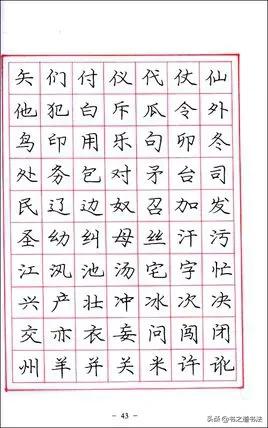 矢们付仪代仗仙
他犯白斥瓜令外
鸟印用乐句卯冬
处务包对矛台司
民辽边奴召加发
圣幼纠母丝汗污
江汎池汤宅字忙
兴产壮冲冰次决
交亦衣妄问闯闭
州羊并关米许讹
- 43 -
头条 @书之道书法